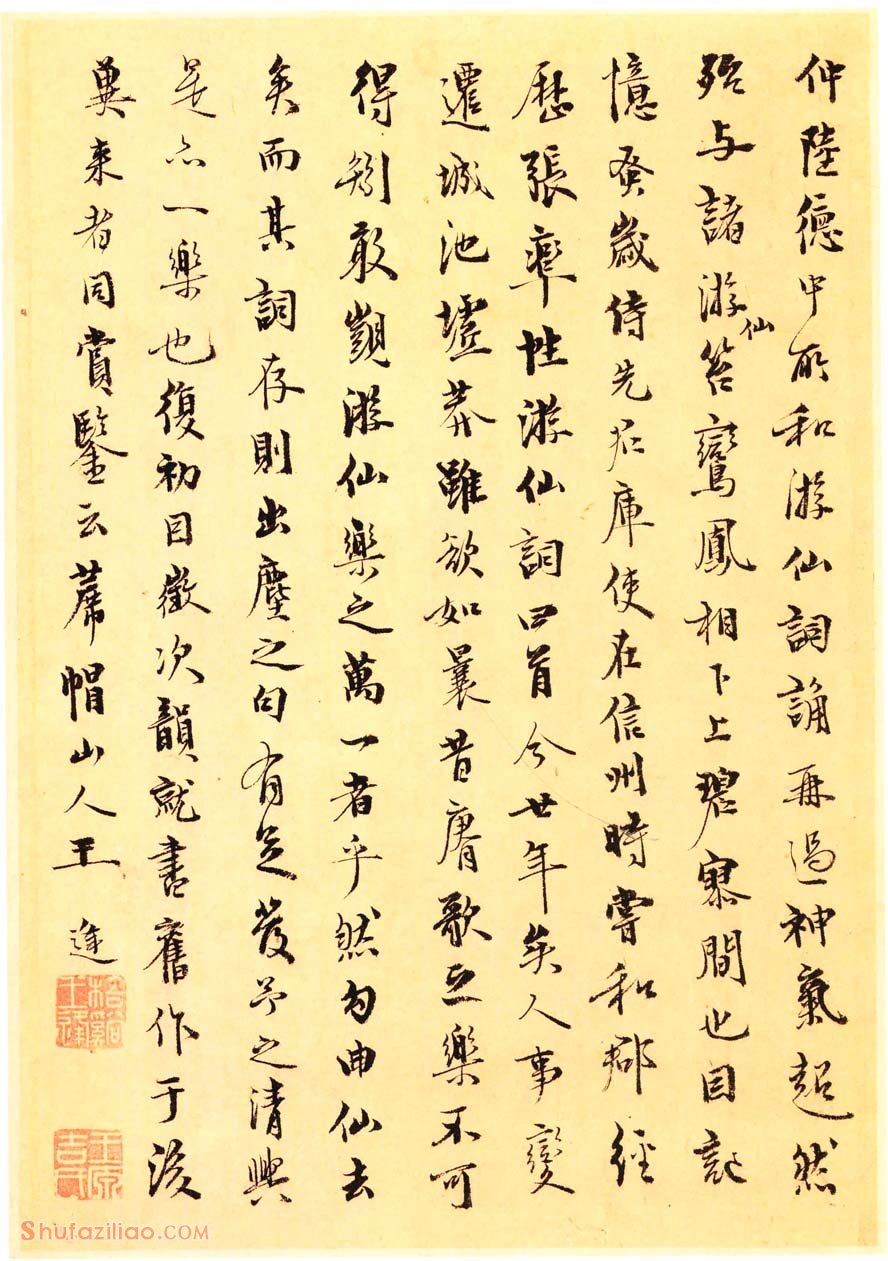 仲陸德中所和游仙詞誦再過神氣超然
殆与諸游仙笞鸞鳳相下上碧寥間也因記
憶蚤歲侍先君庫使在信州時嘗和郡經
歷張率性游仙詞四首今廿年矣人事變
遷城池墟莽雖欲如曩昔賡歌之樂不可
得矧敢覬游仙樂之萬一者乎然句曲仙去
矣而其詞存則出塵之句有足發予之清興
是亦一樂也復初因徵次韻就書舊作于後
冀来者同賞鑒云蓆帽山人王逢
梧溪王逢
王原吉氏
Shufaziliao.COM